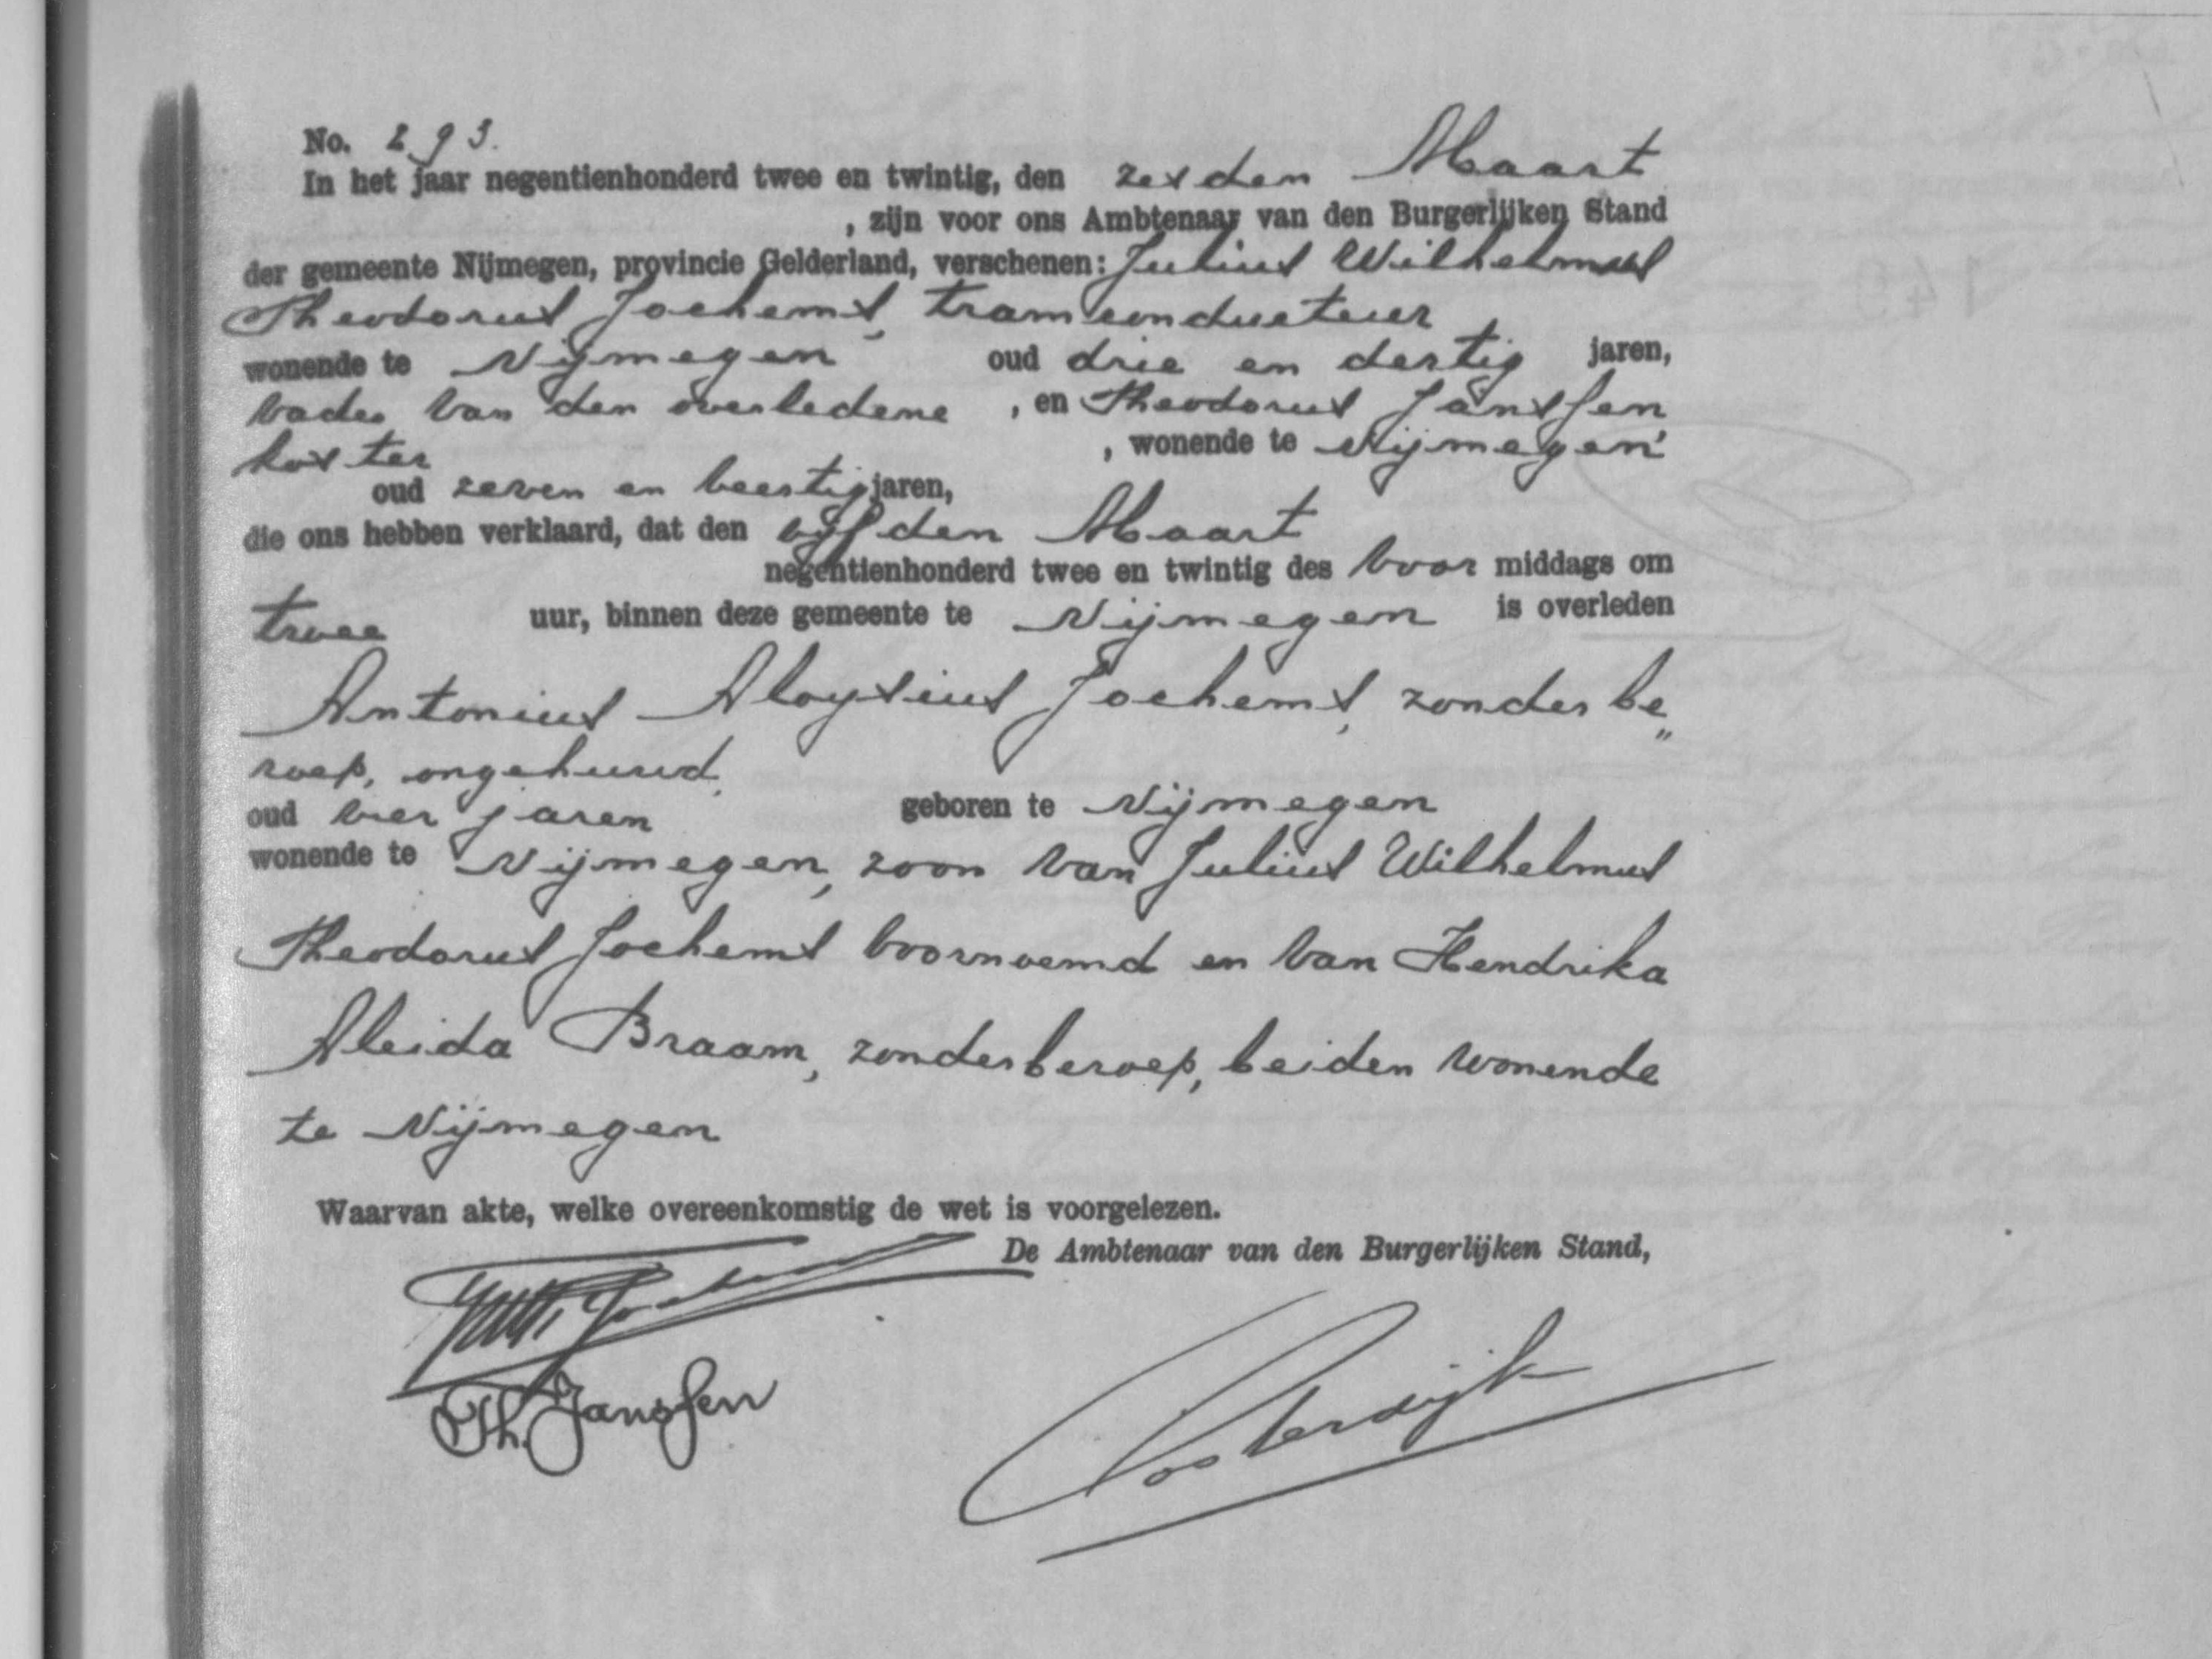 No. 293.
In het jaar negentienhonderd twee en twintig, den zesden Maart
, zijn voor ons Ambtenaar van den Burgerlijken Stand
der gemeente Nijmegen, provincie Gelderland, verschenen: Julius Wilhelmus
Theodorus Jochems, tramconducteur
wonende te Nijmegen oud drie en dertig jaren,
vader van den overledene , en Theodorus Janssen
koster , wonende te Nijmegen
oud zeven en veertig jaren,
die ons hebben verklaard, dat den vijfden Maart
negentienhonderd twee en twintig des voor middags om
twee uur, binnen deze gemeente te Nijmegen is overleden
Antonius Aloysius Jochems, zonder be„
roep, ongehuwd,
oud vier jaren geboren te Nijmegen
wonende te Nijmegen, zoon van Julius Wilhelmus
Theodorus Jochems voornoemd en van Hendrika
Aleida Braam, zonder beroep, beiden wonende
te Nijmegen
Waarvan akte, welke overeenkomstig de wet is voorgelezen.
De Ambtenaar van den Burgerlijken Stand,
Th. Janssen
Oosterdijk
149